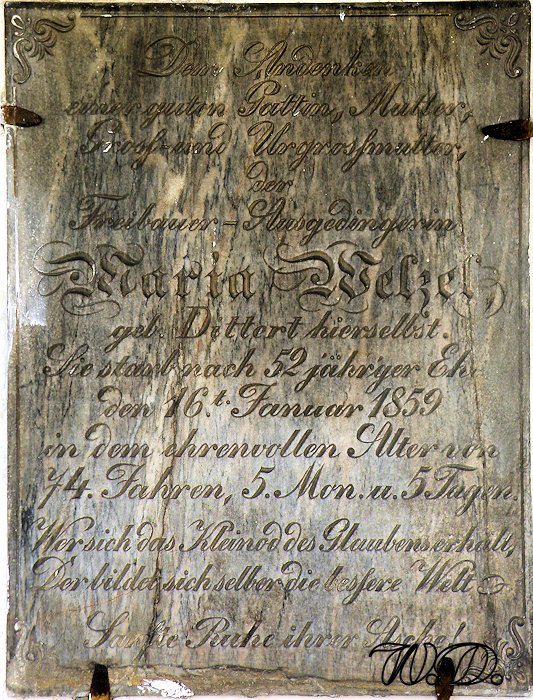 Dem Andenken
einer guten Gattin, Mutter,
Gross- und Urgrossmutter,
der
Freibauer-Ausgedingerin
Maria Welzel
geb. Dittert hierselbst.
Sie starb nach 52 jähriger Ehe
den 16t. Januar 1859
in dem ehrenvollen Alter von
74. Jahren, 5. Mon. u. 5 Tagen.
Wer sich das Kleinod des Glaubens erhält,
Der bildet sich selber die bessere Welt
Sanfte Ruhe ihrer Asche!
W.D.